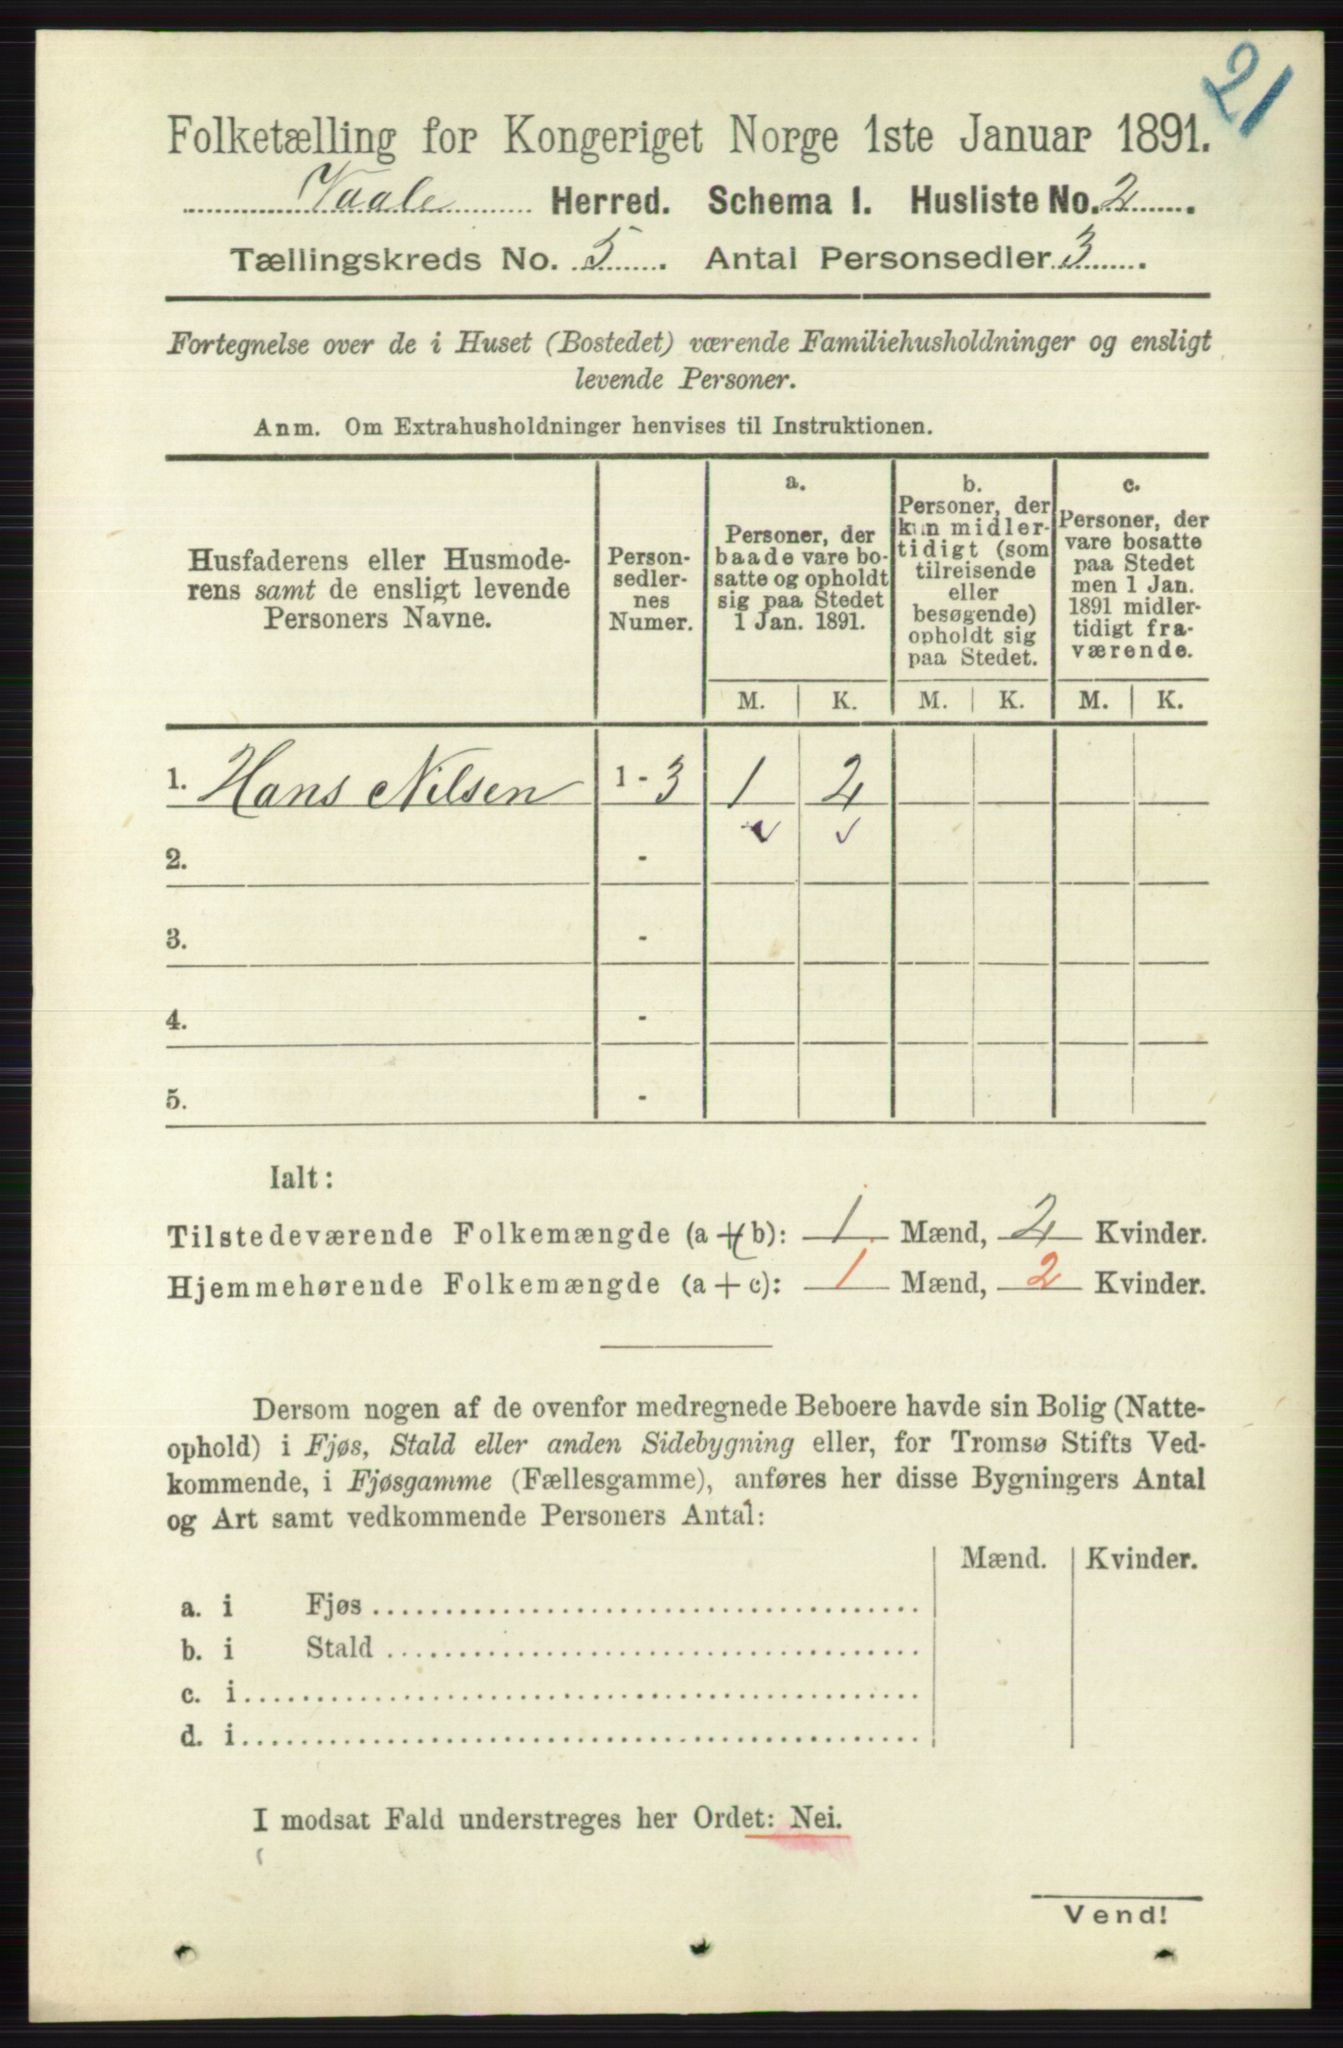 21
Folketælling for Kongeriget Norge 1ste Januar 1891.
Vaale Herred. Schema I. Husliste No. 2.
Tællingskreds No. 5. Antal Personsedler 3.
Fortegnelse over de i Huset (Bostedet) værende Familiehusholdninger og ensligt
levende Personer.
Anm. Om Extrahusholdninger henvises til Instruktionen.
Husfaderens eller Husmode-
rens samt de ensligt levende
Personers Navne.
Person-
sedler-
nes
Numer.
a.
Personer, der
baade vare bo-
satte og opholdt
sig paa Stedet
1 Jan. 1891.
b.
Personer, der
kun midler-
tidigt (som
tilreisende
eller
besøgende)
opholdt sig
paa Stedet.
c.
Personer, der
vare bosatte
paa Stedet
men 1 Jan.
1891 midler-
tidigt fra-
værende.
M. K. M. K. M. K.
1. Hans Nilsen 1 - 3 1 2
2. -
3. -
4. -
5. -
Ialt:
Tilstedeværende Folkemængde (a + b): 1 Mænd, 2 Kvinder.
Hjemmehørende Folkemængde (a + c): 1 Mænd, 2 Kvinder.
Dersom nogen af de ovenfor medregnede Beboere havde sin Bolig (Natte-
ophold) i Fjøs, Stald eller anden Sidebygning eller, for Tromsø Stifts Ved-
kommende, i Fjøsgamme (Fællesgamme), anføres her disse Bygningers Antal
og Art samt vedkommende Personers Antal:
Mænd. Kvinder.
a. i Fjøs
b. i Stald
c. i
d. i
I modsat Fald understreges her Ordet: Nei.
Vend!